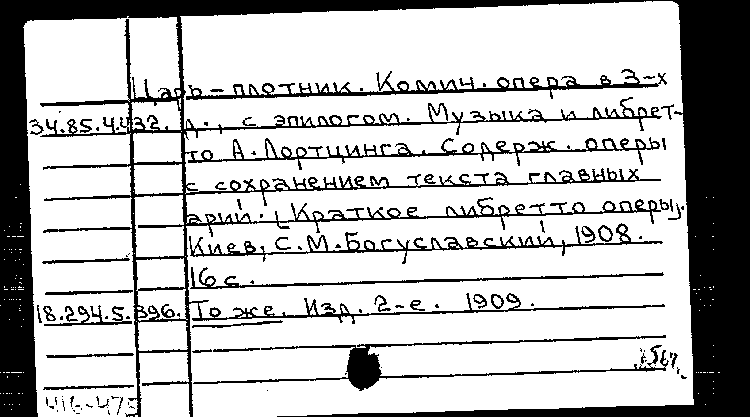 Царь-плотник. Комич. опера в 3-х
34.85.4.432. д., с эпилогом. Музыка и либрет-
то А. Лортцинга. Содерж. оперы
с сохранением текста главных
арий. [Краткое либретто оперы].
Киев, С.М. Богуславский, 1908.
16 с.
18.294.5.396. То же. Изд. 2-е. 1909.
416-475